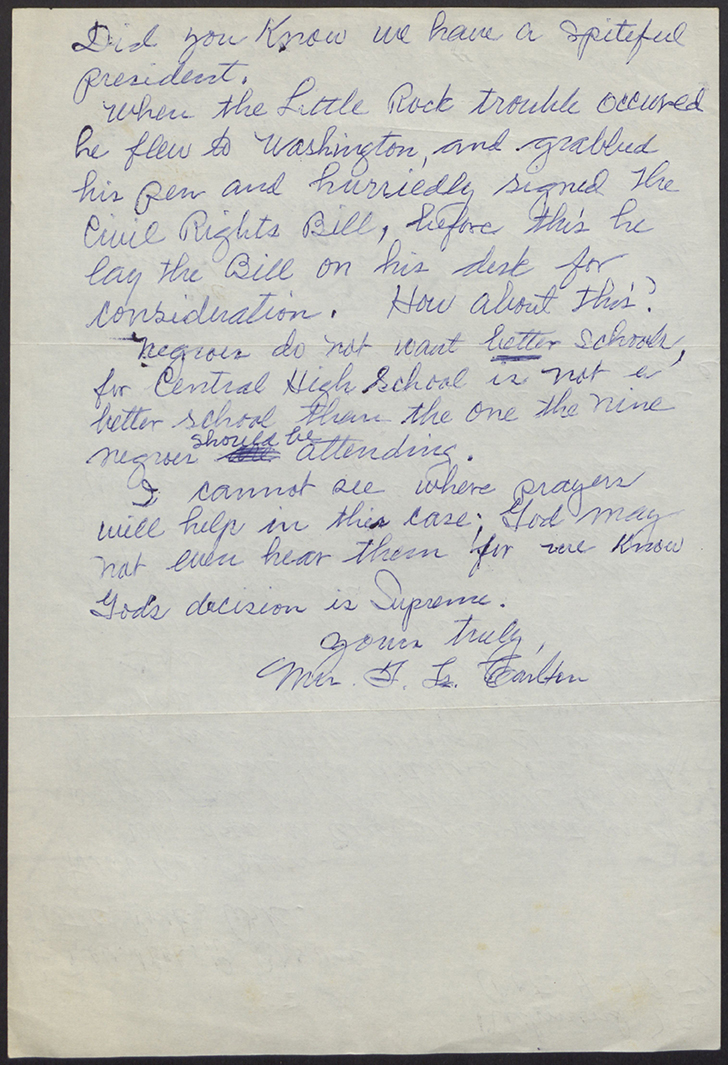 Did you Know we have a spiteful
president.
When the Little Rock trouble occured
he flew to Washington, and grabbed
his pen and hurriedly signed the
Civil Rights Bill, before this he
lay the Bill on his desk for
consideration. How about this?
Negroes do not want better schools,
for Central High School is not a
better school than the one the nine
negroes should be attending.
I cannot see where prayers
will help in this case; God may
not even hear them for we Know
God's decision is Supreme.
yours truly,
Mrs.